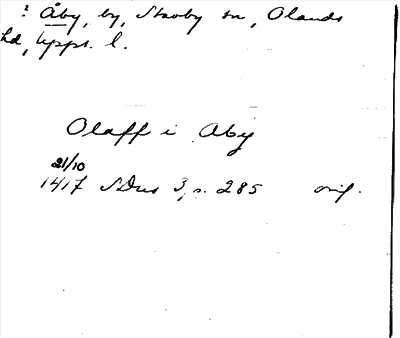 : Åby, by, Skuby sn, Olands
hd, Upps. l.
Olaff i Aby
21/10
1417 SDns 3, s. 285 orig.